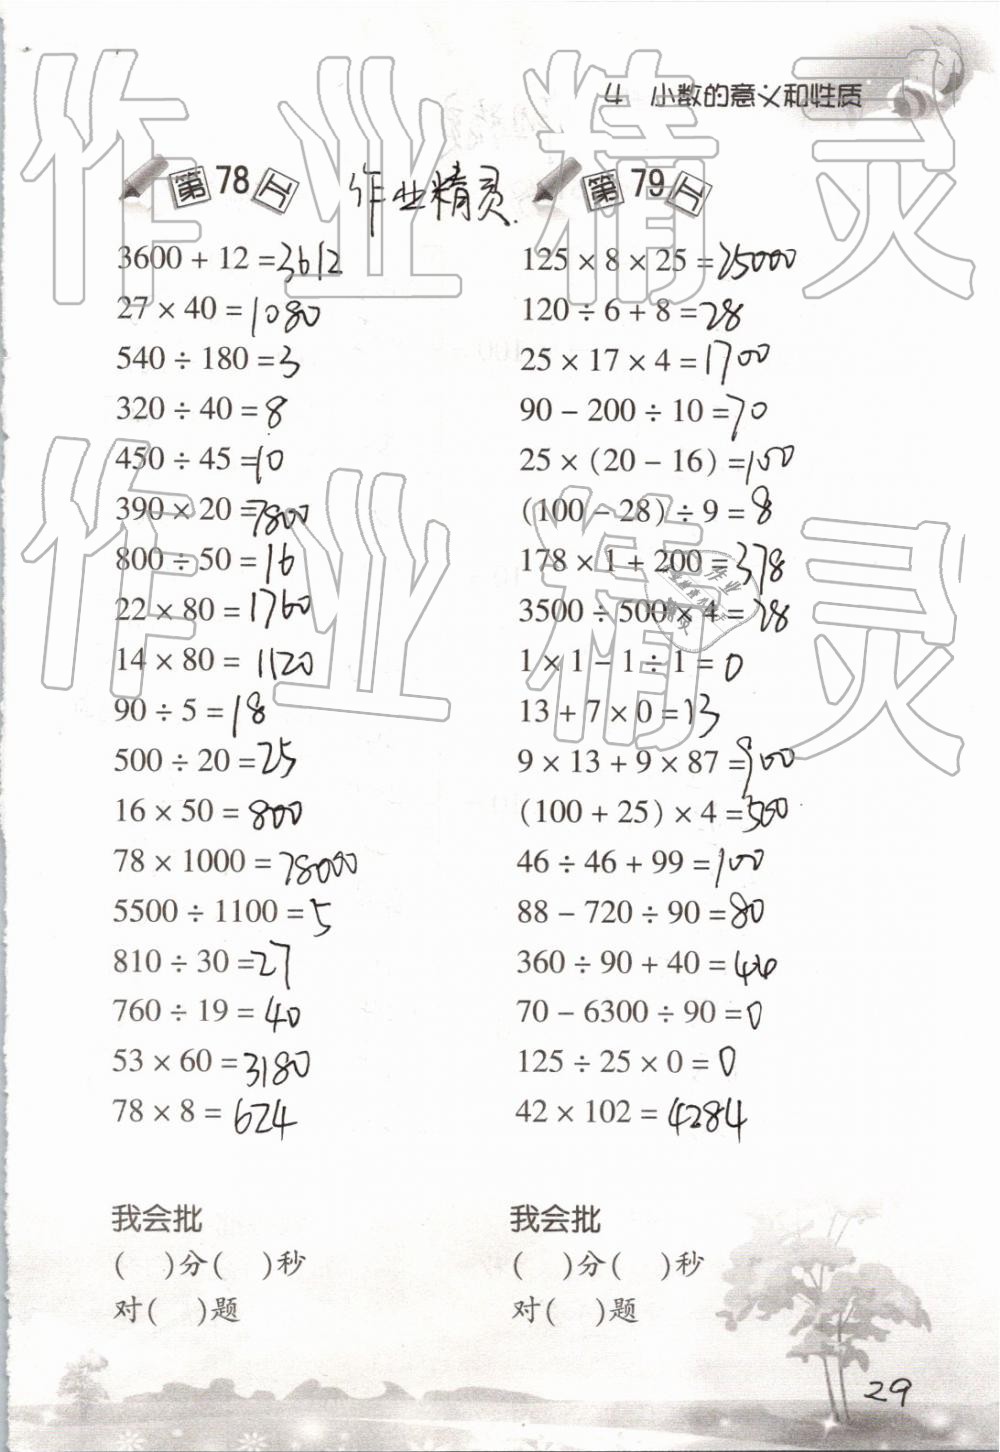 4 小数的意义和性质
第78天
作业精灵
3600 + 12 = 3612
27 × 40 = 1080
540 ÷ 180 = 3
320 ÷ 40 = 8
450 ÷ 45 = 10
390 × 20 = 7800
800 ÷ 50 = 16
22 × 80 = 1760
14 × 80 = 1120
90 ÷ 5 = 18
500 ÷ 20 = 25
16 × 50 = 800
78 × 1000 = 78000
5500 ÷ 1100 = 5
810 ÷ 30 = 27
760 ÷ 19 = 40
53 × 60 = 3180
78 × 8 = 624
我会批
( )分( )秒
对( )题
第79天
125 × 8 × 25 = 25000
120 ÷ 6 + 8 = 28
25 × 17 × 4 = 1700
90 − 200 ÷ 10 = 70
25 × (20 − 16) = 100
(100 − 28) ÷ 9 = 8
178 × 1 + 200 = 378
3500 ÷ 500 × 4 = 28
1 × 1 − 1 ÷ 1 = 0
13 + 7 × 0 = 13
9 × 13 + 9 × 87 = 900
(100 + 25) × 4 = 500
46 ÷ 46 + 99 = 100
88 − 720 ÷ 90 = 80
360 ÷ 90 + 40 = 44
70 − 6300 ÷ 90 = 0
125 ÷ 25 × 0 = 0
42 × 102 = 4284
我会批
( )分( )秒
对( )题
29
作业精灵
作业精灵